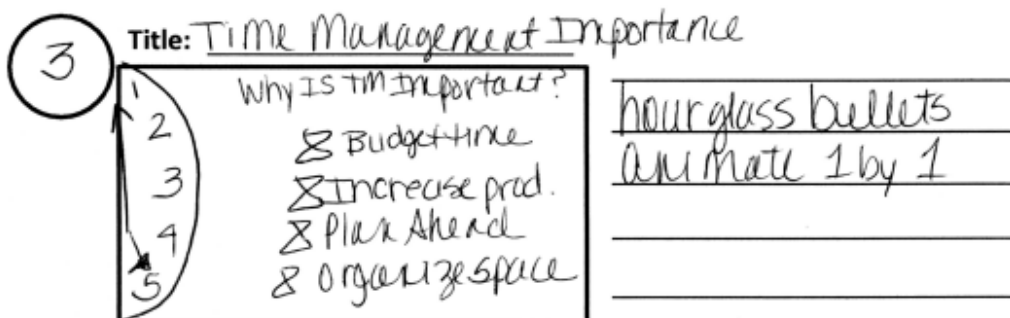 3
Title: Time Management Importance
Why Is TM Important?
1
2
3
4
5
Budget time
Increase prod.
Plan Ahead
organize space
hourglass bullets
animate 1 by 1